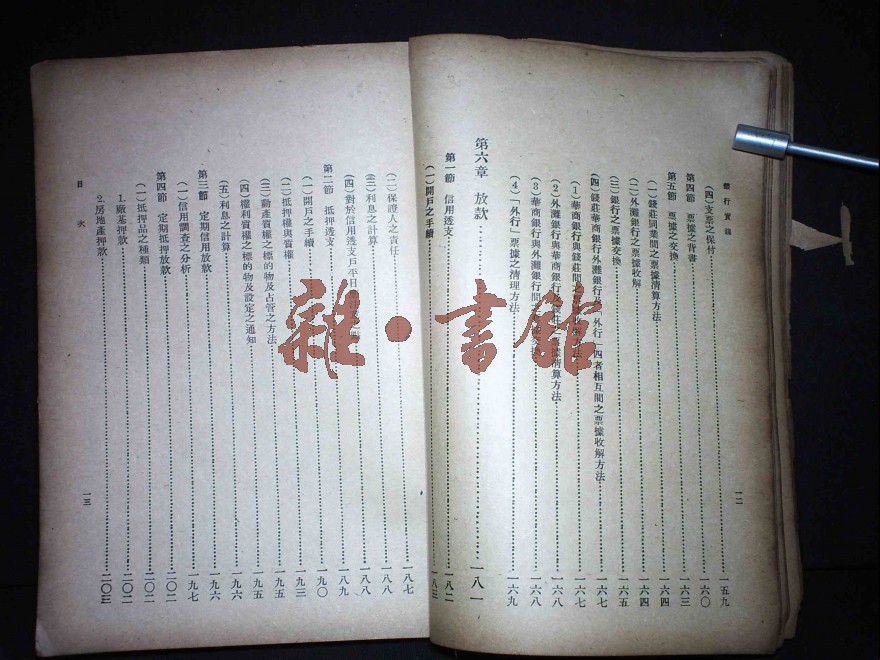 銀行實務
(四)支票之保付……一五九
第四節 票據之背書……一六〇
第五節 票據之交換……一六三
(一)錢莊同業間之票據清算方法……一六四
(二)外灘銀行之票據收解……一六四
(三)銀行之票據交換……一六五
(四)錢莊華商銀行外灘銀行及「外行」四者相互間之票據收解方法……一六七
1 華商銀行與錢莊間之……方法……一六七
2 外灘銀行與華商銀行及錢莊……據清算方法……一六八
3 華商銀行與外灘銀行間之……一六八
4 「外行」票據之清理方法……一六九
第六章 放款……一八一
第一節 信用透支……一八二
(一)開戶之手續……一八三
一二
(二)保證人之責任……一八七
(三)利息之計算……一八八
(四)對於信用透支戶平日……一八九
第二節 抵押透支……一九〇
(一)開戶之手續……一九三
(二)抵押權與質權……一九五
(三)動產質權之標的物及占管之方法……一九五
(四)權利質權之標的物及設定之通知……一九六
(五)利息之計算……一九六
第三節 定期信用放款……一九七
(一)信用調查之分析……二〇二
第四節 定期抵押放款……二〇二
(一)抵押品之種類……二〇二
1. 廠基押款……二〇二
2. 房地產押款……二〇三
目次
一三
雜·書館